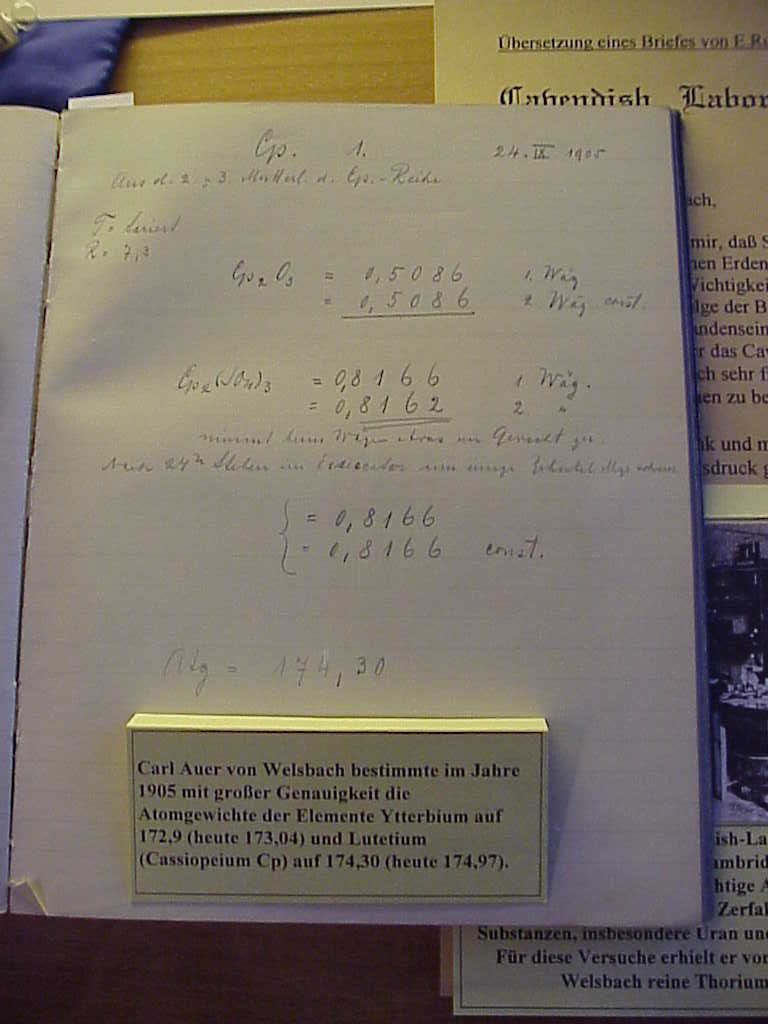 Übersetzung eines Briefes von E.
Cavendish Labor
ach,
mir, daß S
nen Erden
Wichtigkei
lge der B
andensein
r das Cav
ch sehr f
en zu be
nk und m
sdruck g
Cp. 1. 24.IX 1905
Aus d. 2 u. 3. Mutterl. d. Cp.-Reihe
R = 7,3
Cp2O3 = 0,5086 1. Wäg
= 0,5086 2. Wäg const.
Cp2(SO4)3 = 0,8166 1 Wäg.
= 0,8162 2. "
nimmt beim Wägen etwas an Gewicht zu.
Nach 24h Stehen im um einige
= 0,8166
= 0,8166 const.
Atg = 174,30
Carl Auer von Welsbach bestimmte im Jahre
1905 mit großer Genauigkeit die
Atomgewichte der Elemente Ytterbium auf
172,9 (heute 173,04) und Lutetium
(Cassiopeium Cp) auf 174,30 (heute 174,97).
ish-La
ambrid
htige A
Zerfal
Substanzen, insbesondere Uran und
Für diese Versuche erhielt er von
Welsbach reine Thorium